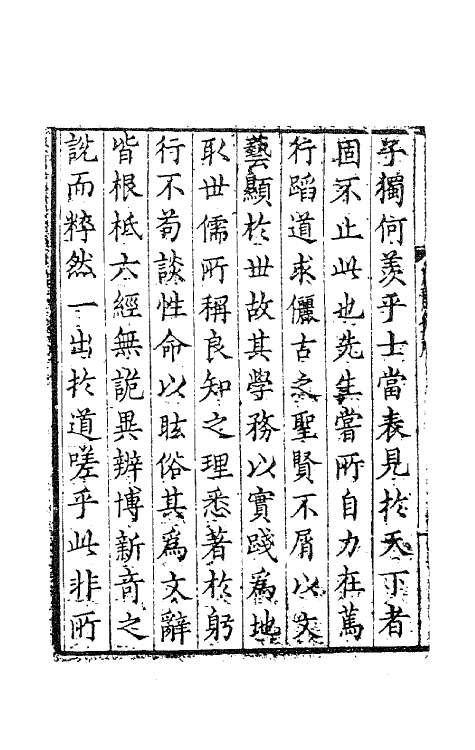 子獨何羨乎士當表見於天下者
固不止此也先生嘗所自力在篤
行蹈道求儷古之聖賢不屑以文
藝顯於世故其學務以實踐為地
取世儒所稱良知之理悉著於躬
行不苟談性命以眩俗其爲文辭
皆根柢六經無詭異辨博新音之
說而粹然一出於道嗟乎此非所